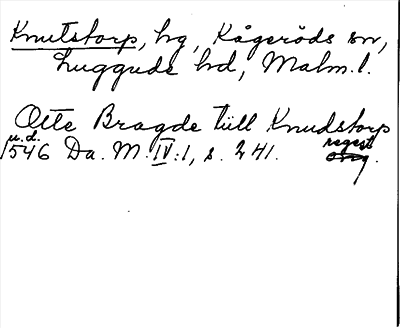 Knutstorp, hg, Kågeröds sn,
Luggude hd, Malm. l.
Otte Bragde tüll Knudstorp
u.d. regest
1546 Da. M. IV:1, s. 241. orig.